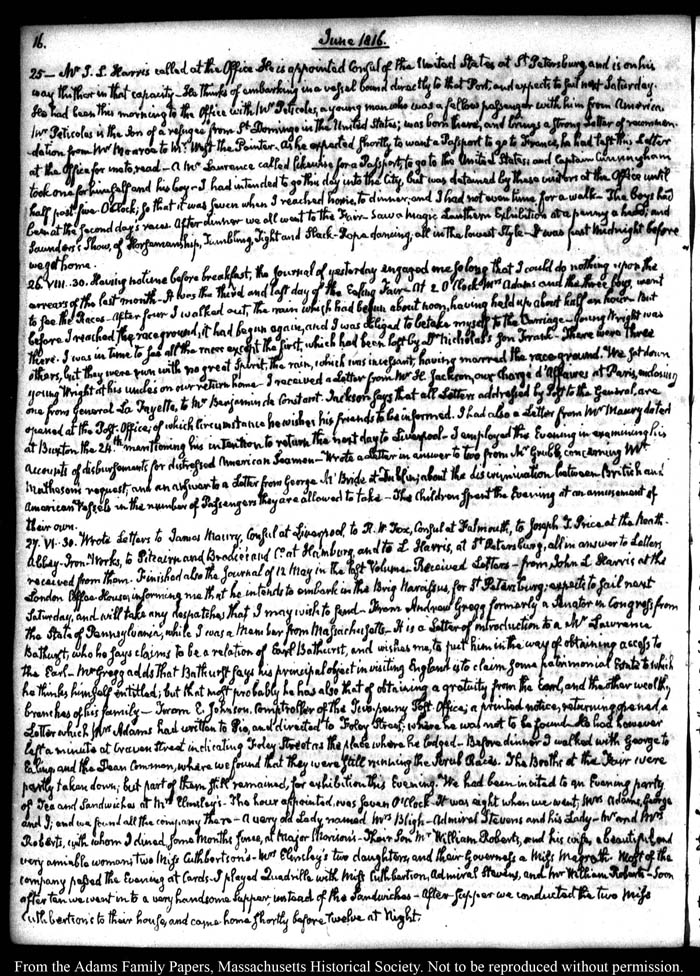 16.
June 1816.
25 — Mr J. L. Harris called at the Office. He is appointed Consul of the United States at St Petersburg and is on his
way thither in that capacity — He thinks of embarking in a vessel bound directly to that Port, and expects to sail next Saturday.
He had been this morning to the Office with Mr Peticolas, a young man who was a fellow passenger with him from America.
Mr Peticolas is the Son of a refugee from St Domingo in the United States; was born there, and brings a strong Letter of recommen-
dation from Mr Monroe to Mr West the Painter. As he expected shortly to want a Passport to go to France, he had left this Letter
at the Office for me to read — A Mr Lawrence called likewise for a Passport, to go to the United States; and Captain Cunningham
took one for himself and his boy — I had intended to go this day into the City, but was detained by these visitors at the Office until
half past five O'Clock; so that it was seven when I reached home, to dinner; and I had not even time for a walk — The boys had
been at the second day's races. After dinner we all went to the Fair — Saw a Magic Lanthern Exhibition at a penny a head; and
Saunders's Show, of Horsemanship, Tumbling, Tight and Slack-Rope dancing, all in the lowest Style — It was past Midnight before
we got home.
26. VIII. 30. Having not time before breakfast, the Journal of yesterday engaged me so long that I could do nothing upon the
arrears of the last month — It was the third and last day of the Ealing Fair — At 2 O'Clock Mrs Adams and the three boys, went
to see the Races — After four I walked out, the rain which had begun about noon, having held up about half an hour — But
before I reached the race ground, it had begun again, and I was obliged to betake myself to the Carriage — young Wright was
there. I was in time to see all the races except the first, which had been left by Dr Nicholas's Son Frank — There were three
others, but they were run with no great Spirit, the rain, which was incessant, having marred the race ground. We set down
young Wright at his uncles on our return home — I received a Letter from Mr H. Jackson, our Chargé d'Affaires at Paris, enclosing
one from General La Fayette, to Mr Benjamin de Constant. Jackson says that all Letters addressed by Post to the General, are
opened at the Post-Offices, of which circumstance he wishes his friends to be informed. I had also a Letter from Mr Maury dated
at Buxton the 24th mentioning his intention to return the next day to Liverpool — I employed the Evening in examining his
accounts of disbursements for distressed American Seamen — Wrote a Letter in answer to two from Mr Grubb, concerning Mr
Mathason's request, and an answer to a Letter from George M'Bride at Dublin, about the discrimination between British and
American Vessels in the number of Passengers they are allowed to take — The Children spent the Evening at an amusement of
their own.
27. VI. 30. Wrote Letters to James Maury, Consul at Liverpool, to R. W. Fox, Consul at Falmouth, to Joseph T. Price at the Neath-
Abbey-Iron-Works, to Pitcairn and Brodie and Co. at Hamburg, and to L. Harris, at St Petersburg, all in answer to Letters
received from them. Finished also the Journal of 12 May in the last Volume. Received Letters — from John L. Harris at the
London Coffee-House, informing me that he intends to embark in the Brig Narcissus, for St Petersburg; expects to sail next
Saturday, and will take any despatches that I may wish to send — From Andrew Gregg formerly a Senator in Congress from
the State of Pennsylvania, while I was a Member from Massachusetts — It is a Letter of introduction to a Mr Lawrence
Bathurst, who he says claims to be a relation of Earl Bathurst, and wishes me, to put him in the way of obtaining access to
the Earl — Mr Gregg adds that Bathurst says his principal object in visiting England is to claim some patrimonial Estate to which
he thinks himself entitled; but that most probably he has also that of obtaining a gratuity from the Earl, and the other wealthy
branches of his family — From E. Johnson, Comptroller of the Two-penny Post Office; a printed notice, returning opened, a
Letter which Mrs Adams had written to Pio, and directed to Foley Street; where he was not to be found. He had however
left a minute at Craven Street indicating Foley Street as the place where he lodged — Before dinner I walked with George to
Ealing and the Dean Common, where we found that they were still running the Scrub Races. The Booths at the Fair were
partly taken down; but part of them still remained, for exhibition this Evening. We had been invited to an Evening party
of Tea and Sandwiches at Mrs Elmsley's. The hour appointed, was Seven O'Clock. It was eight when we went; Mrs Adams, George
and I; and we found all the company there — A very old Lady named Mrs Bligh — Admiral Stevens and his Lady — Mr and Mrs
Roberts, with whom I dined some Months since, at Major Morison's — Their Son Mr William Roberts, and his wife, a beautiful and
very amiable woman; two Miss Cuthbertson's — Mrs Elmsley's two daughters, and their Governess a Miss Magrath — Most of the
company passed the Evening at Cards — I played Quadrille with Miss Cuthbertson, Admiral Stevens, and Mr William Roberts — Soon
after ten we went in to a very handsome supper, instead of the Sandwiches — After Supper we conducted the two Miss
Cuthbertson's to their house, and came home shortly before Twelve at Night.
From the Adams Family Papers, Massachusetts Historical Society. Not to be reproduced without permission.